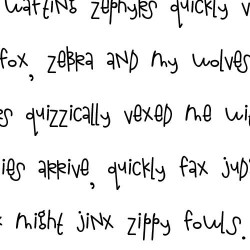 wafting zephyrs quickly v
fox, zebra and my wolves
es quizzically vexed me wi
ies arrive, quickly fax jud
x might jinx zippy fowls.